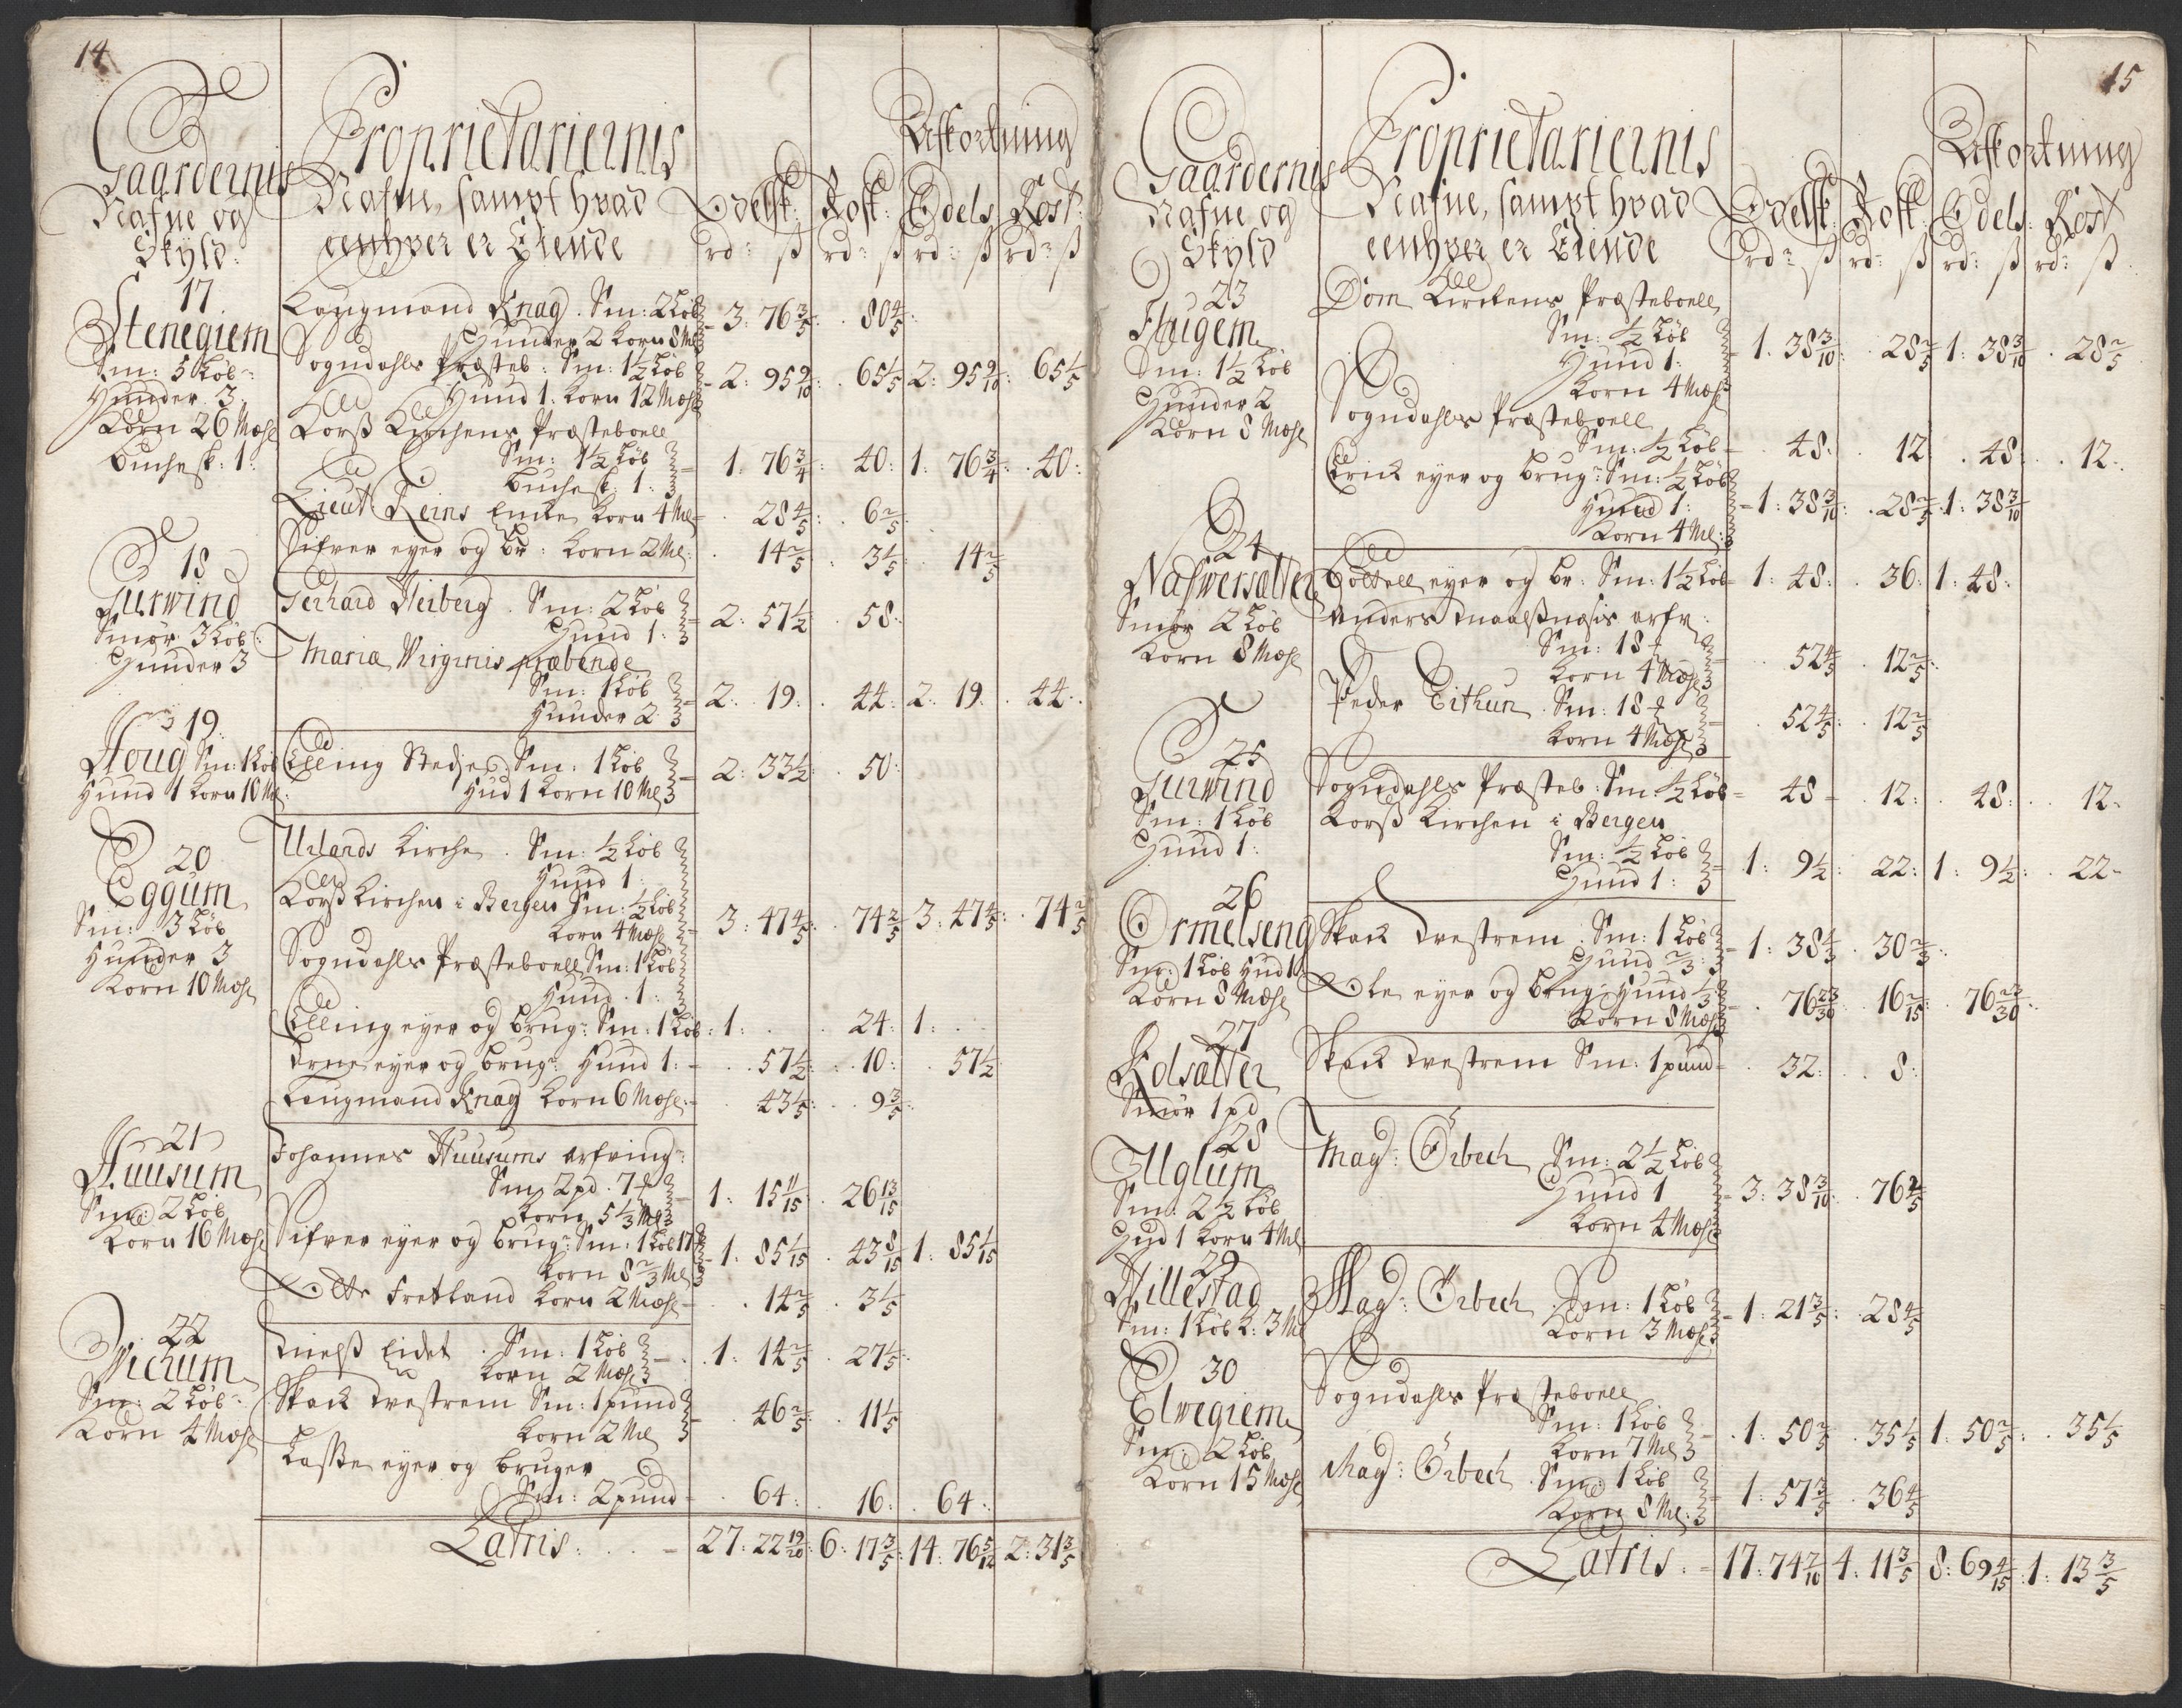 14
Gaardernis
Nafne og
Skyld
Proprietariernis
Nafne, sampt hvad
eenhver er Eiende
Afkortning
Odelsk: Rosk: Odels: Rost:
rd: ß rd: ß rd: ß rd: ß
17
Stenegiem
Sm: 5 Løb
Hunder 3
Korn 26 Mæhl
Buchesk: 1:
Laugmand Knag. Sm: 2 Løb
Hunder 2 Korn 8 Ml 3: 76 3/5: 80 4/5:
Sogndahls Præsteb: Sm: 1 1/2 Løb
Hund 1: Korn 12 Mæhl 2: 95 9/10: 65 1/5 2: 95 9/10: 65 1/5
Korß Kirchens Præsteboell
Sm: 1 1/2 Løb
Buchesk: 1: 1: 76 3/4: 40: 1: 76 3/4: 40:
Lieut Reins Enke Korn 4 Ml 28 4/5: 6 2/5
Sifver eyer og br: Korn 2 Ml: 14 2/5 3 1/5 14 2/5
18
Turwind
Smør 3 Løb:
Hunder 3
Gerhard Herberg. Sm: 2 Løb
Hund 1: 2: 57 1/2 58:
Maria Virginis præbende
Sm: 1 Løb
Hunder 2 2: 19: 44: 2: 19: 44:
19
Houg Sm: 1 Løb
Hund 1 Korn 10 Ml:
Elling Stedje Sm: 1 Løb
Hud 1 Korn 10 Ml 2: 33 1/2: 50:
20
Eggum
Sm: 3 Løb
Hunder 3
Korn 10 Mæhl
Urlands Kirche. Sm: 1/2 Løb
Hund 1:
Korß Kirchen i Bergen Sm: 1/2 Løb
Korn 4 Mæhl 3: 47 4/5: 74 2/5 3: 47 4/5: 74 2/5
Sogndahls Præsteboell Sm: 1 Løb
Hund. 1:
Elling eyer og brug: Sm: 1 Løb: 1: 24: 1:
Arne eyer og brug: Hund 1: 57 1/2: 10: 57 1/2
Laugmand Knag Korn 6 Mæhl: 43 1/5: 9 3/5:
21
Huusum
Sm: 2 Løb
Korn 16 Mæhl
Johannes Huusums arfving:
Sm: 2 pd. 7 ℔
Korn 5 1/3 Ml 1: 15 11/15 26 13/15
Sifver eyer og brug: Sm: 1 Løb 17 ℔
Korn 8 2/3 Ml 1: 85 1/15 43 8/15 1: 85 1/15
Fretland Korn 2 Mæhl 14 2/5 3 1/5
22
Wichum
Sm: 2 Løb
Korn 4 Mæhl
Nielß Eidet. Sm: 1 Løb
Korn 2 Mæhl 1: 14 2/5 27 1/5:
Skack Tvestrem Sm: 1 pund
Korn 2 Ml 46 2/5: 11 1/5
Laße eyer og bruger
Sm: 2 pund 64: 16: 64:
Latris: 27: 22 19/20: 6: 17 3/5: 14: 76 5/12 2: 31 3/5
15
Gaardernis
Nafne og
Skyld
Proprietariernis
Nafne, sampt hvad
eenhver er Eiende
Afkortning
Odelsk: Rosk: Odels: Rost
rd: ß rd: ß rd: ß rd: ß
23
Flugem
Sm: 1 1/2 Løb
Hunder 2
Korn 8 Mæhl
Dom Kirckens Præsteboell
Sm: 1/2 Løb
Hund 1:
Korn 4 Mæhl 1: 38 3/10: 28 2/5 1: 38 3/10 28 2/5
Sogndahls Præsteboell
Sm: 1/2 Løb 48: 12 48: 12:
Erick eyer og brug: Sm: 1/2 Løb
Hund 1:
Korn 4 Ml: 1: 38 3/10: 28 2/5 1: 38 3/10
24
Nafwersætter
Smør 2 Løb
Korn 8 Mæhl
eyer og br: Sm: 1 1/2 Løb 1: 48: 36: 1: 48:
Anders arfv:
Sm: 18 ℔
Korn 4 Mæhl 52 4/5 12 2/5:
Peder Eithun. Sm: 18 ℔
Korn 4 Mæhl 52 4/5: 12 2/5
25
Turwind
Sm: 1 Løb
Hund 1:
Sogndahls Præsteb: Sm: 1/2 Løb 48 12: 48: 12:
Korß Kirchen i Bergen
Sm: 1/2 Løb
Hund 1: 1: 9 1/2: 22: 1: 9 1/2: 22
26
Ormelseng
Sm: 1 Løb Hud 1:
Korn 8 Mæhl
Skack Tvestrem. Sm: 1 Løb
Hund 2/3: 1: 38 1/3 30 2/3:
Ole eyer og brug: Hund 1/3
Korn 8 Mæhl 76 23/30 16 2/15: 76 23/30
27
Kolsætter
Smør 1 pd
Skack Tvestrem Sm: 1 pund 32: 8:
28
Uglum
Sm: 2 1/2 Løb
Hud 1 Korn 4 Ml
Mag: Ørbech Sm: 2 1/2 Løb
Hund 1
Korn 4 Mæhl 3: 38 3/10 76 2/5
29
Hillestad
Sm: 1 Løb K: 3 Ml
Mag: Ørbech Sm: 1 Løb
Korn 3 Mæhl 1: 21 3/5: 28 4/5
30
Elwegiem
Sm: 2 Løb
Korn 15 Mæhl
Sogndahls Præsteboell
Sm: 1 Løb
Korn 7 Ml 1: 50 2/5 35 1/5 1: 50 2/5: 35 1/5
Mag: Ørbech. Sm: 1 Løb
Korn 8 Ml: 1: 57 3/5 36 4/5
Latris: 17: 74 7/10 4: 11 3/5 8: 69 4/15: 1: 13 3/5